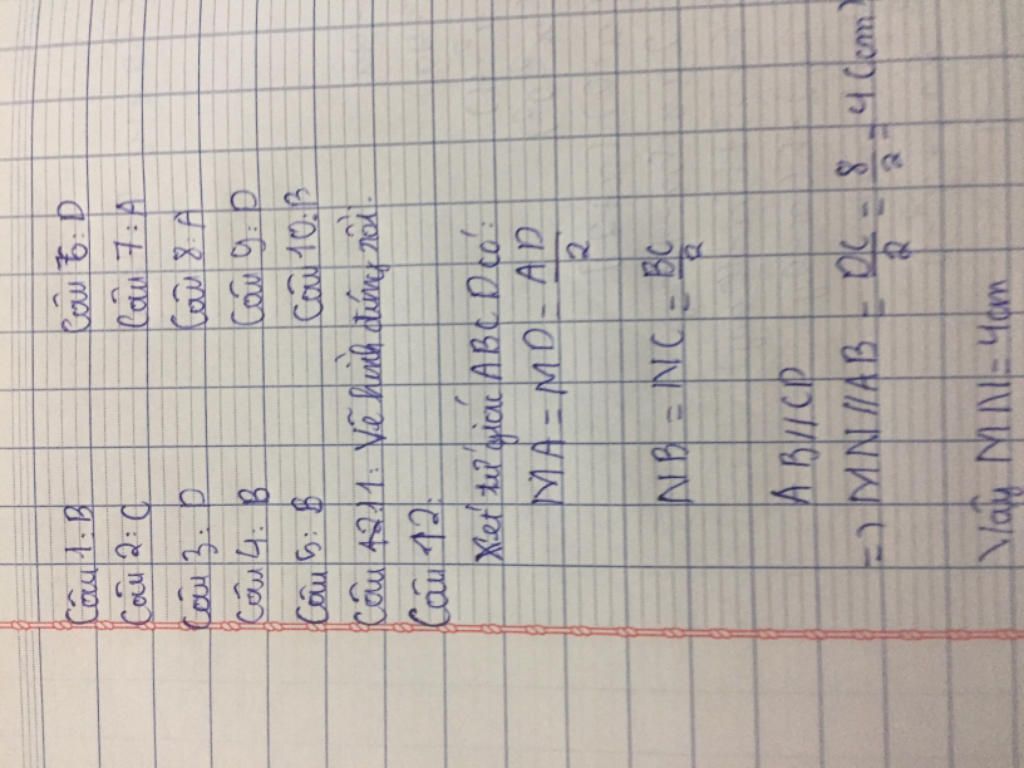 Câu 1: B Câu 6: D
Câu 2: C Câu 7: A
Câu 3: D Câu 8: A
Câu 4: B Câu 9: D
Câu 5: B Câu 10: B
Câu 11: Vẽ hình đúng rồi.
Câu 12:
Xét tứ giác ABCD có:
MA = MD = AD/2
NB = NC = BC/2
AB//CD
=> MN//AB = DC/2 = 8/2 = 4 (cm)
Vậy MN = 4cm